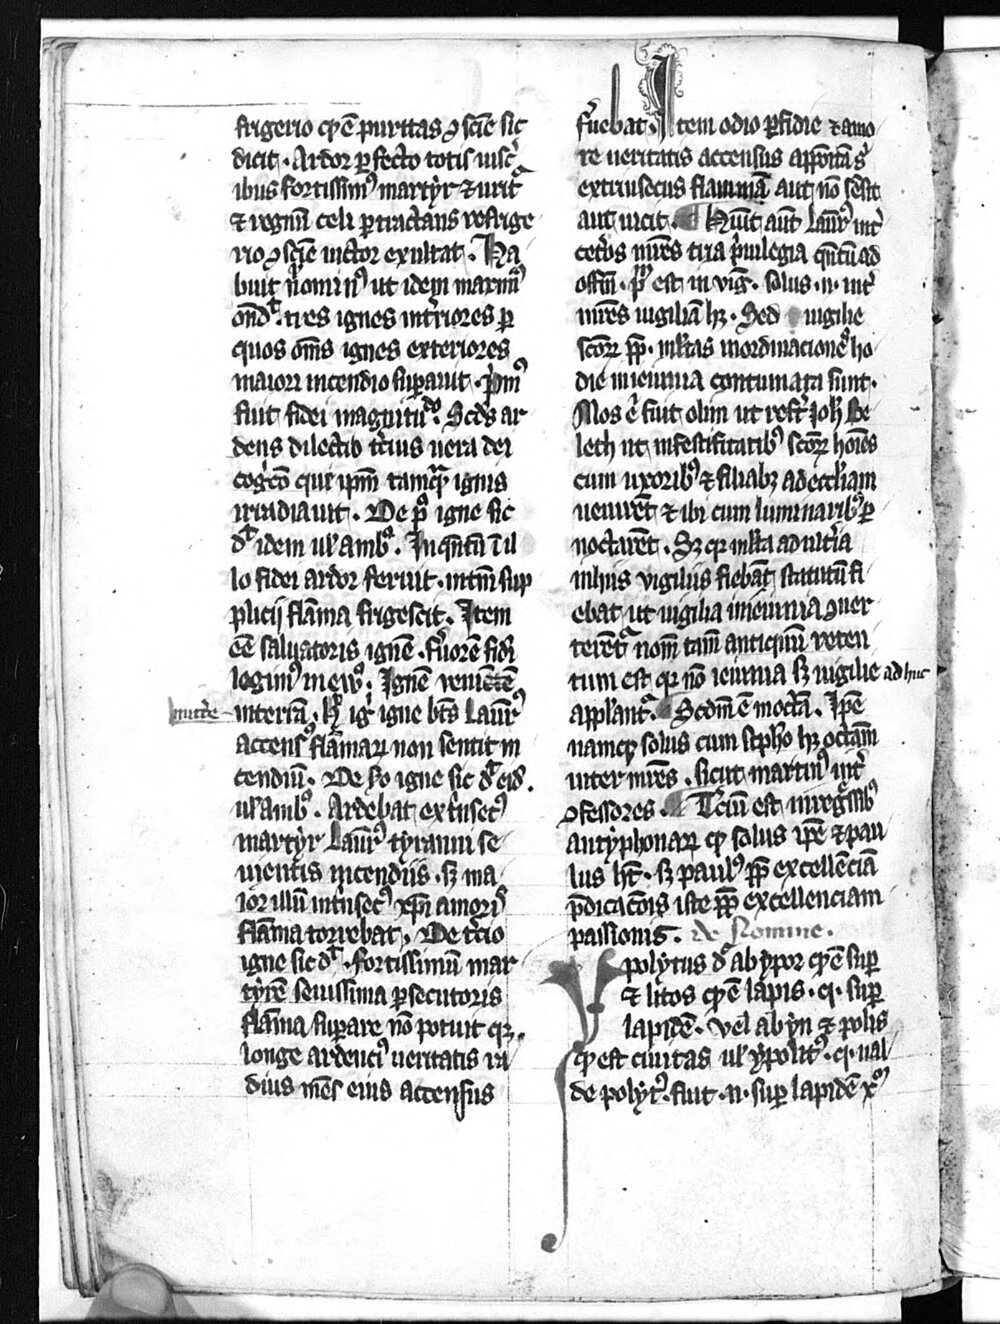 frigerio qᵈ ē puritas ꝯscīe sic
dicit · Ardor ꝑfecto totis uisc̄
ibus fortissimꝰ martyr ⁊ urit᷑
⁊ regnū celi ꝑtractans refrige
rio ꝯscīe uictor exultat · Ha
buit n̄ominꝰ ut idem maximꝰ
ond᷑ · tres ignes int̄iores ꝑ
quos om̄s ignes exteriores
maiori incendio suꝑauit · p̄mꝰ
fuit fidei magnitudo · Scd̄s ar
dens dilectio t̄cius uera dei
cogc̄o que ip̄m tamqᵃ ignis
irradiauit · De pᵒ igne sic
dᵗ idem ul̓ ambᵃ · In qn̄tū ī il
lo fidei ardor feruit · intm̄ sup
plicij flāma frigescit · Item
eē saluatoris ignē · f̄uorē fidī
loḡimꝰ in ewᵒ · Ignē ueni
mitt̄e
in terrā · H igit̄ igne bt̄s Laur̄
accensꝰ flāmaꝝ non sentit in
cendiū · De 2ᵒ igne sic dᵗ eid᷑
ul̓ ambꝰ · Ardebat ext̄nsecꝰ
martyr Laur̄ tyranni se
uientis incendiis · sꝫ ma
ior illū int̄nsecꝰ xp̄i amorꝭ
flāma torrebat · De t̄cio
igne sic dᵗ · fortissimū mar
tyrē seuissima ꝑsecutoris
flāma suꝑare nō potuit qꝛ
longe ardenciꝰ ueritatis ra
dius mēs eius accensus
f̄uebat · Item odio ꝑfidie ⁊ amo
re ueritatis accensus apponitā
extrinsecus flammā aut nō sēsit
aut uicit · Hūit aūt Laur̄ int̄
cet̄os mr̄es tria p̄uilegia qn̄tū ad
offm̄ · pᵐ est in vig · solus · n · int̄
mr̄es uigiliā hꝫ · Sed uigilie
sc̄oꝝ ꝓpt · ml̄tas inordinacionēs ho
die in ieiunia conmutata sunt ·
Mos ē fuit olim ut refert Joh̄ Be
lech ut in festiuitatibꝰ sc̄oꝝ hoīes
cum uxoribꝰ ⁊ filiabꝫ ad eccl̄iam
uenirēt ⁊ ibi cum luminaribꝰ ꝑ
noctarēt · Sꝫ qꝛ ml̄ta adult̄ia
in hiis vigiliis fiebāt statutū fi
ebat ut uigilia in ieiunia ꝯuer
terēt᷑ nom̄ tam̄ antiquū reten
tum est qꝛ nō ieiunia sꝫ uigilie ad huc
appl̄ant᷑ · Scdm̄ ē in octa · Ip̄e
namqꝫ solus cum stepho hꝫ octam̄
inter mr̄es · sicut martinꝰ int̄
ꝯfessores · T̄ciū est in reg̅ssibꝰ
antyphonaꝝ qᵈ solus ip̄e ⁊ pau
lus hn̄t · sꝫ paulꝰ ꝓpt excellenciā
p̄dicac̄ois iste ꝓpt excellenciam
passionis · de Nomine ·
Ypolytus dᵗ ab ypor qᵈ ē suꝑ
⁊ litos qᵈ ē lapis · qⁱ · suꝑ
lapidē · vel ab yn ⁊ polis
qᵈ est ciuitas ul̓ ypolitꝰ · qⁱ · ual
de polytꝰ · fuit · n · suꝑ lapidē xᵐ